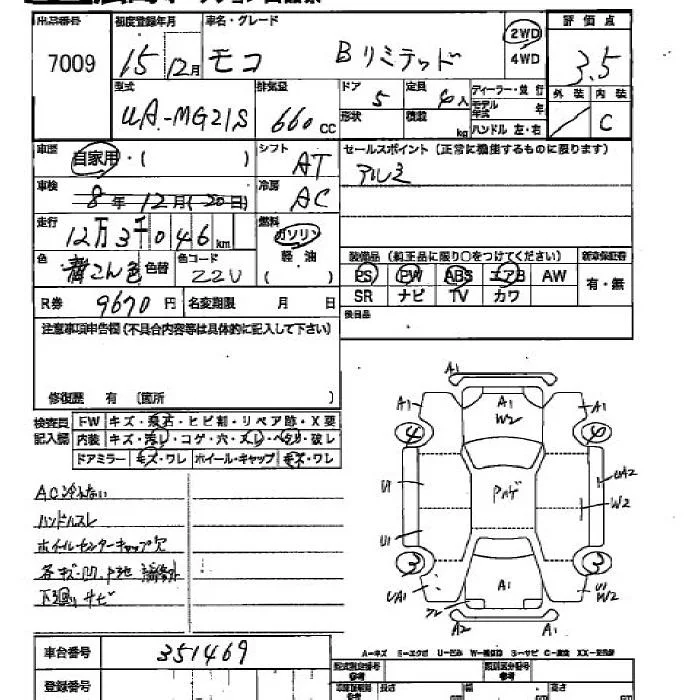 出品番号 初度登録年月 車名・グレード 評価点
7009 15年 12月 モコ Bリミテッド 2WD 3.5
4WD
型式 排気量 ドア 定員 ディーラー・並行 外装 内装
UA-MG21S 660cc 5 4人 モデル年式 年 C
形状 積載 kg ハンドル 左・右
車歴 自家用・( ) シフト AT セールスポイント (正常に機能するものに限ります)
アルミ
車検 8年 12月 (20日) 冷房 AC
走行 12万3千046km 燃料 ガソリン
軽油
( )
色 青こん色 色替 色コード Z2U
装備品 (純正品に限り〇をつけてください) 新車保証書
PS PW ABS エアB AW 有・無
SR ナビ TV カワ
R券 9670円 名変期限 月 日
後日品
注意事項申告欄(不具合内容等は具体的に記入して下さい)
修復歴 有 〔箇所 〕
検査員記入欄 FW キズ・飛石・ヒビ割・リペア跡・X要
内装 キズ・汚レ・コゲ・穴・スレ・ヘタリ・破レ
ドアミラー キズ・ワレ ホイール・キャップ キズ・ワレ
AC冷えない
ハンドルスレ
ホイルセンターキャップ欠
各キズ・凹
下廻りサビ
A1
A1 A1 A1
W2
4 4
U1 Pハゲ UA2
W2
U1
3 3
UA1 A1 U1
W2
A2 A1
車台番号 351469
A-キズ E-エクボ U-凹み W-補修跡 S-サビ C-腐食 XX-交換済
登録番号
型式指定番号 参考 類別区分番号 参考
長さ 幅 高さ